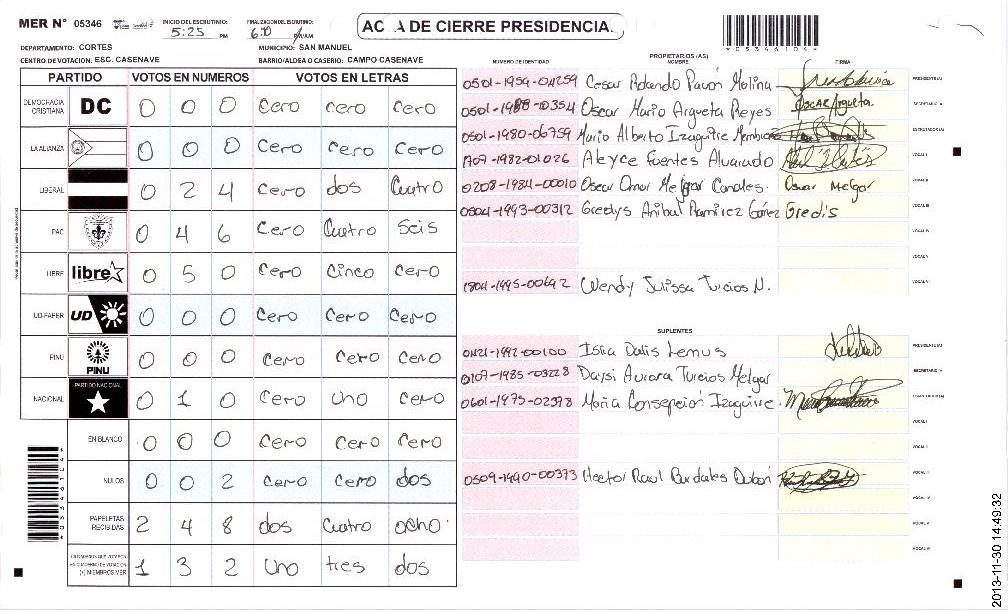 MER N° 05346
INICIO DEL ESCRUTINIO: 5:25 PM
FINALIZACION DEL ESCRUTINIO: PM/AM
DE CIERRE PRESIDENCIA
05346104
DEPARTAMENTO: CORTES
MUNICIPIO: SAN MANUEL
CENTRO DE VOTACION: ESC. CASENAVE
BARRIO/ALDEA O CASERIO: CAMPO CASENAVE
PARTIDO VOTOS EN NUMEROS VOTOS EN LETRAS
DEMOCRACIA CRISTIANA DC 0 0 0 Cero cero Cero
LA ALIANZA 0 0 0 Cero Cero Cero
LIBERAL 0 2 4 Cero dos Cuatro
PAC 0 4 6 Cero Cuatro Seis
LIBRE libre 0 5 0 Cero Cinco Cero
UD-FAPER UD 0 0 0 Cero Cero Cero
PINU PINU 0 0 0 Cero Cero Cero
NACIONAL PARTIDO NACIONAL 0 1 0 Cero uno Cero
EN BLANCO 0 0 0 Cero Cero Cero
NULOS 0 0 2 Cero Cero dos
PAPELETAS RECIBIDAS 2 4 8 dos Cuatro ocho
CIUDADANOS QUE VOTARON EN CUADERNO DE VOTACION (+) MIEMBROS MER 1 3 2 Uno tres dos
PROPIETARIOS (AS)
NUMERO DE IDENTIDAD NOMBRE FIRMA
0501-1959-04259 Cesar Rolando Pavon Molina PRESIDENTE(A)
0501-1988-03554 Oscar Mario Argueta Reyes Oscar Argueta SECRETARIO(A)
0501-1980-06759 Mario Alberto Izaguirre ESCRUTADOR(A)
1707-1982-01026 Aleyce Fuentes Alvarado VOCAL I
0208-1984-00010 Oscar Omar Melgar Canales Oscar Melgar VOCAL II
0504-1993-00312 Gredys Anibal Ramirez Gómez Gredis VOCAL III
VOCAL IV
VOCAL V
1804-1995-00692 Wendy Julissa Turcios N. VOCAL VI
SUPLENTES
0421-1992-00100 Isira Dalis Lemus PRESIDENTE(A)
0107-1985-03228 Daysi Aurora Turcios Melgar SECRETARIO(A)
0601-1975-02598 Maria Consepcion Izaguirre ESCRUTADOR(A)
VOCAL I
VOCAL II
0509-1990-00373 Hector Raul Bardales Dubon VOCAL III
VOCAL IV
VOCAL V
VOCAL VI
2013-11-30 14:49:32